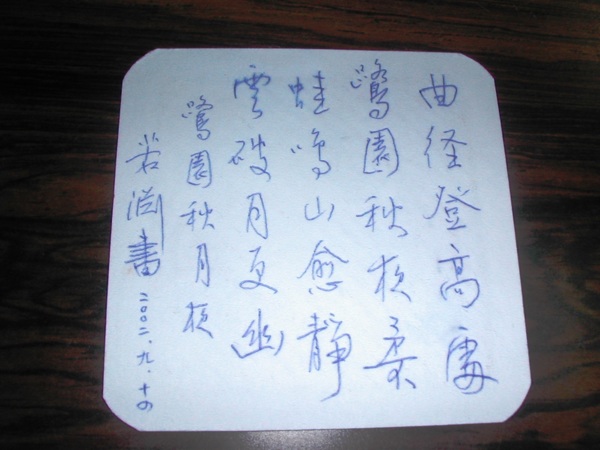 曲径登高處
鷺園秋夜柔
蛙鳴山愈靜
雲破月更幽
鷺園秋月夜
若渊書 二〇〇二.九.十四